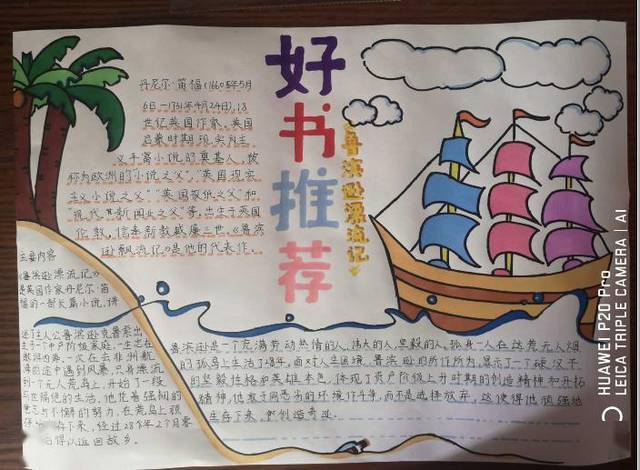 好书推荐
鲁滨逊漂流记
丹尼尔·笛福(1660年5月
6日—1731年4月24日),18
世纪英国作家,英国
启蒙时期现实主
义丰富小说的奠基人,被
称为欧洲的“小说之父”、“英国现实
主义小说之父”、“英国报纸之父”和
“现代新闻业之父”等,出生于英国
伦敦,信奉新教威廉三世。《鲁滨
逊飘流记》是他的代表作。
主要内容
《鲁滨逊漂流记》
是英国作家丹尼尔·笛
福的一部长篇小说,讲
述了主人公鲁滨逊克鲁索出
生于一个中产阶级家庭,一生志在
遨游四海,一次在去非洲航
海的途中遇到风暴,只身漂流
到一个无人荒岛上,开始了一段
与世隔绝的生活,他凭着强韧的
意志与不懈的努力,在荒岛上顽
存下来,经过28个年2个月零
日得以返回故乡。
鲁滨逊是一个充满劳动热情的人,伟大的人,坚毅的人。孤身一人在这荒无人烟
的孤岛上生活了28年。面对人生困境,鲁滨逊的所作所为,显示了一个硬汉子
的坚毅性格和英雄本色,体现了资产阶级上升时期的创造精神和开拓
精神,他敢于同恶劣的环境作斗争,而不是选择放弃,这使得他顽强地
生存下来,并创造奇迹。
HUAWEI P20 Pro
LEICA TRIPLE CAMERA | AI